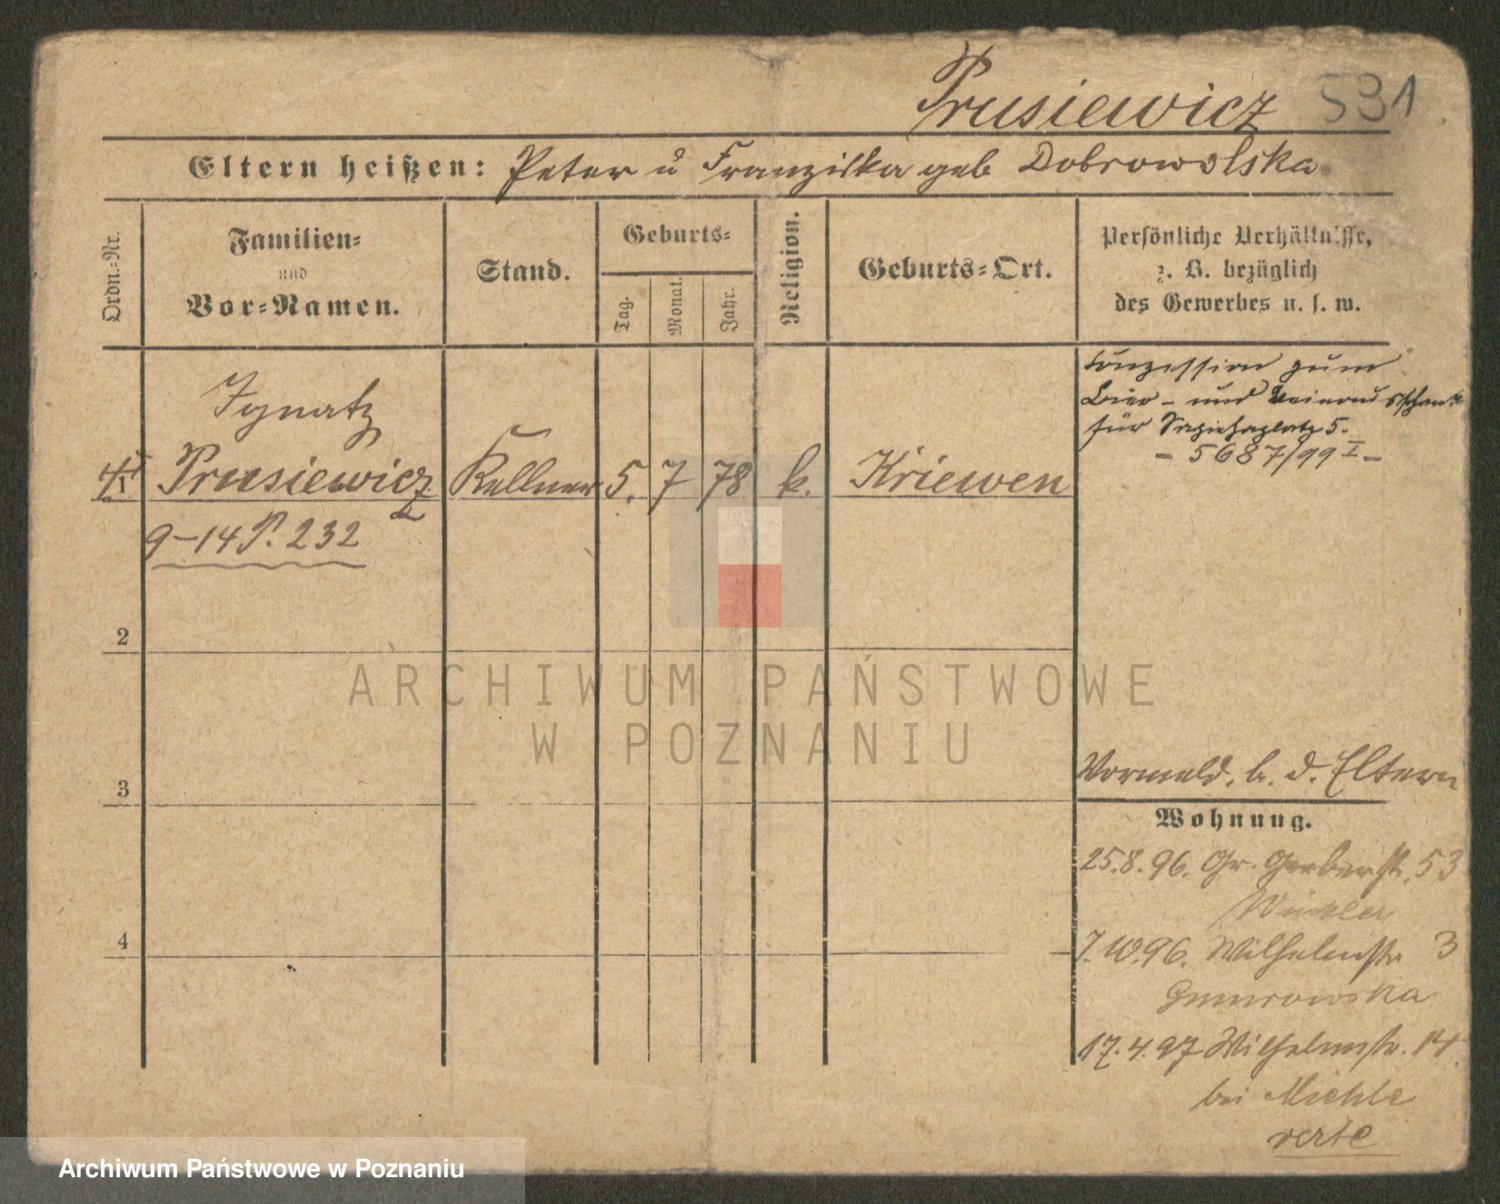 Prusiewicz 531
Eltern heißen: Peter u Franziska geb Dobrowolska
Ordn.-Nr.
Familien-
und
Vor-Namen.
Stand.
Geburts-
Tag.
Monat.
Jahr.
Religion.
Geburts-Ort.
Persönliche Verhältnisse,
z. B. bezüglich
des Gewerbes u. s. w.
Konzession zum
Bier- und Weinausschank
für Sapiehaplatz 5.
- 5687/99 I -
Ignatz
1 Prusiewicz Kellner 5. 7 78 k. Kriewen
9-14 P. 232
2
ARCHIWUM PAŃSTWOWE
W POZNANIU
3
Vormeld. b. d. Eltern
Wohnung.
25.8.96. Gr. Gerberstr. 53
Winkler
4
7.10.96. Wilhelmstr 3
17.4.97 Wilhelmstr. 14
bei Miehle
verte
Archiwum Państwowe w Poznaniu